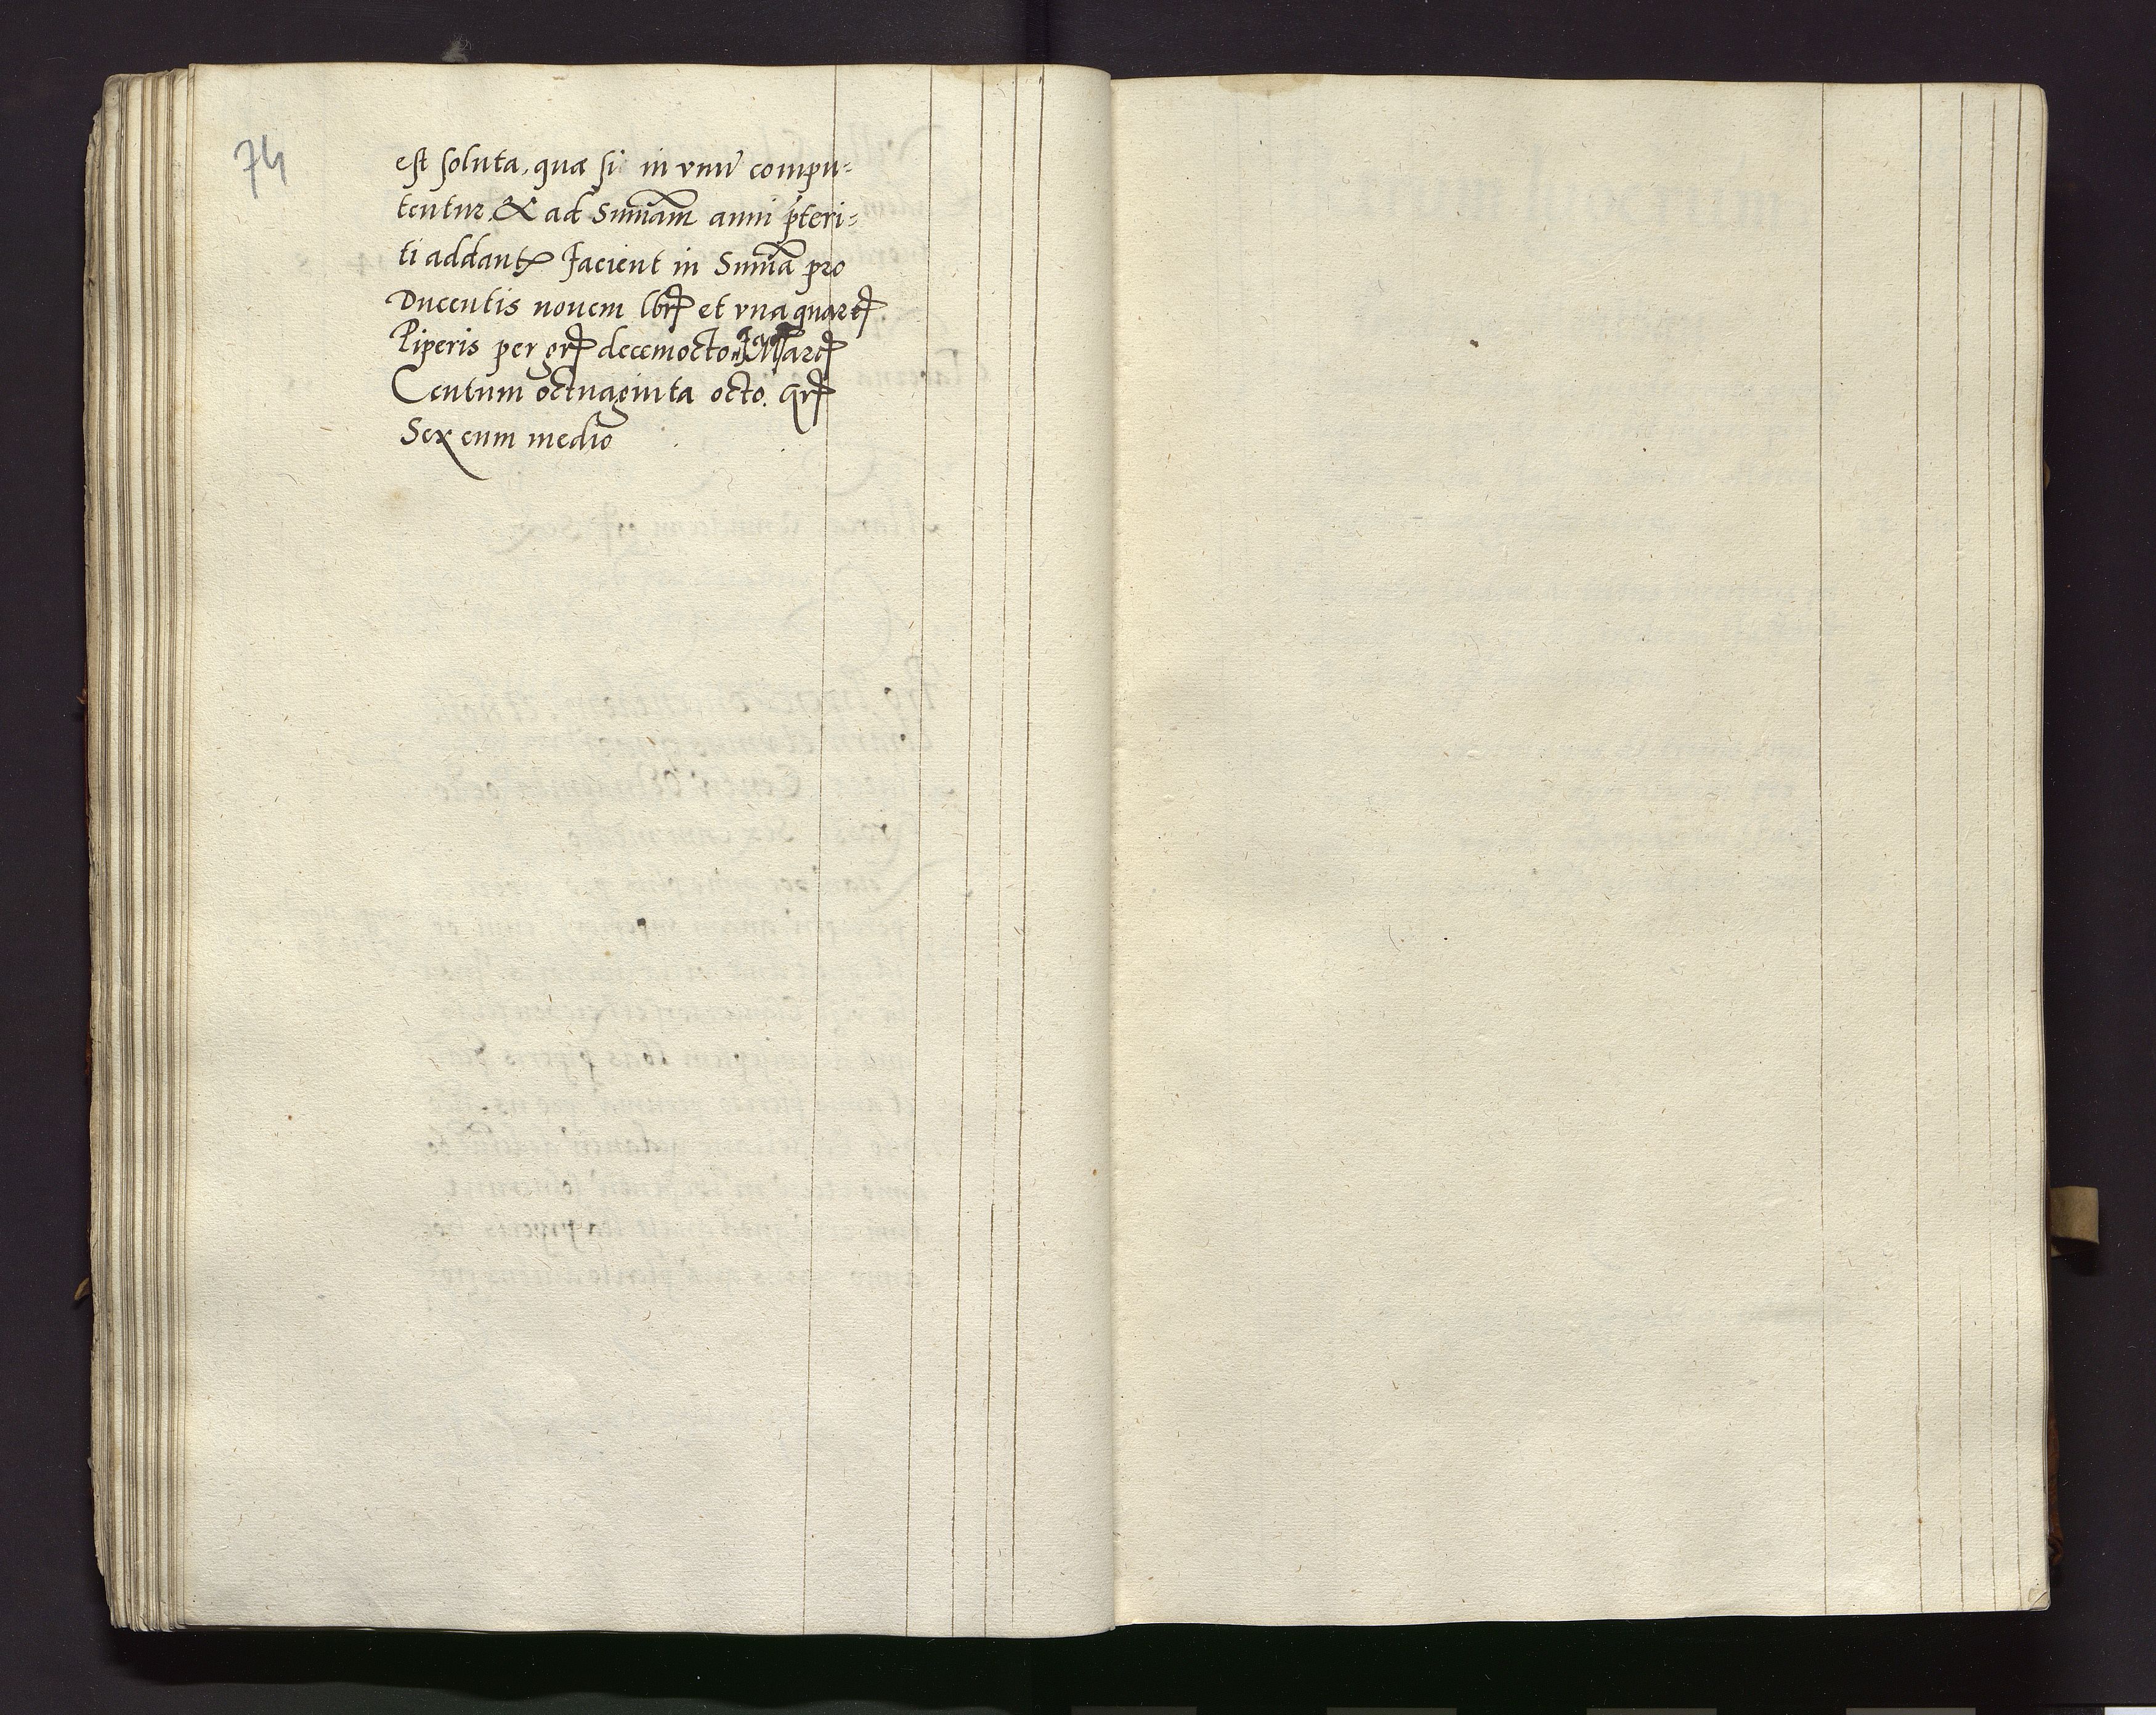 74
est soluta, quæ si in vnū compu-
tentur, & ad Sum̄am anni p̄teri-
ti addantr Facient in Sum̄a pro
Ducentis nouem lbr et vna quart
Piperis per gr decemocto Marc
Centum octuaginta octo. gr
Sex cum medio